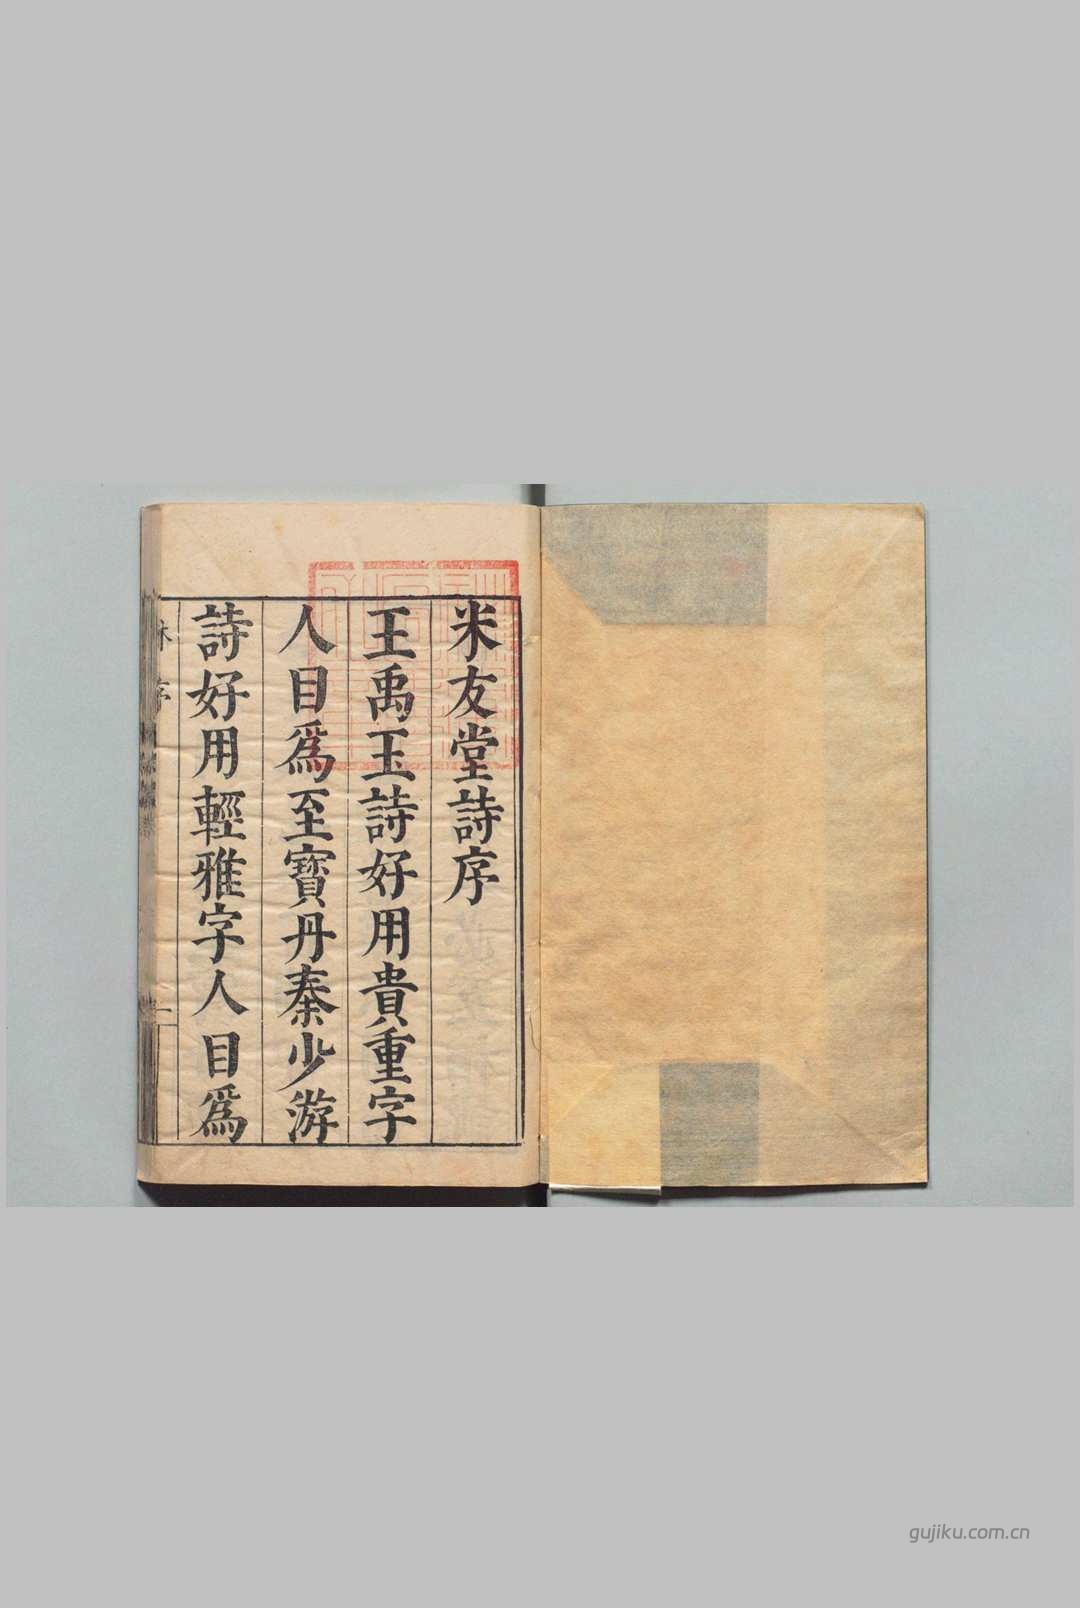 米友堂詩序
王禹玉詩好用貴重字
人目爲至寶丹秦少游
詩好用輕雅字人目爲
序
gujiku.com.cn